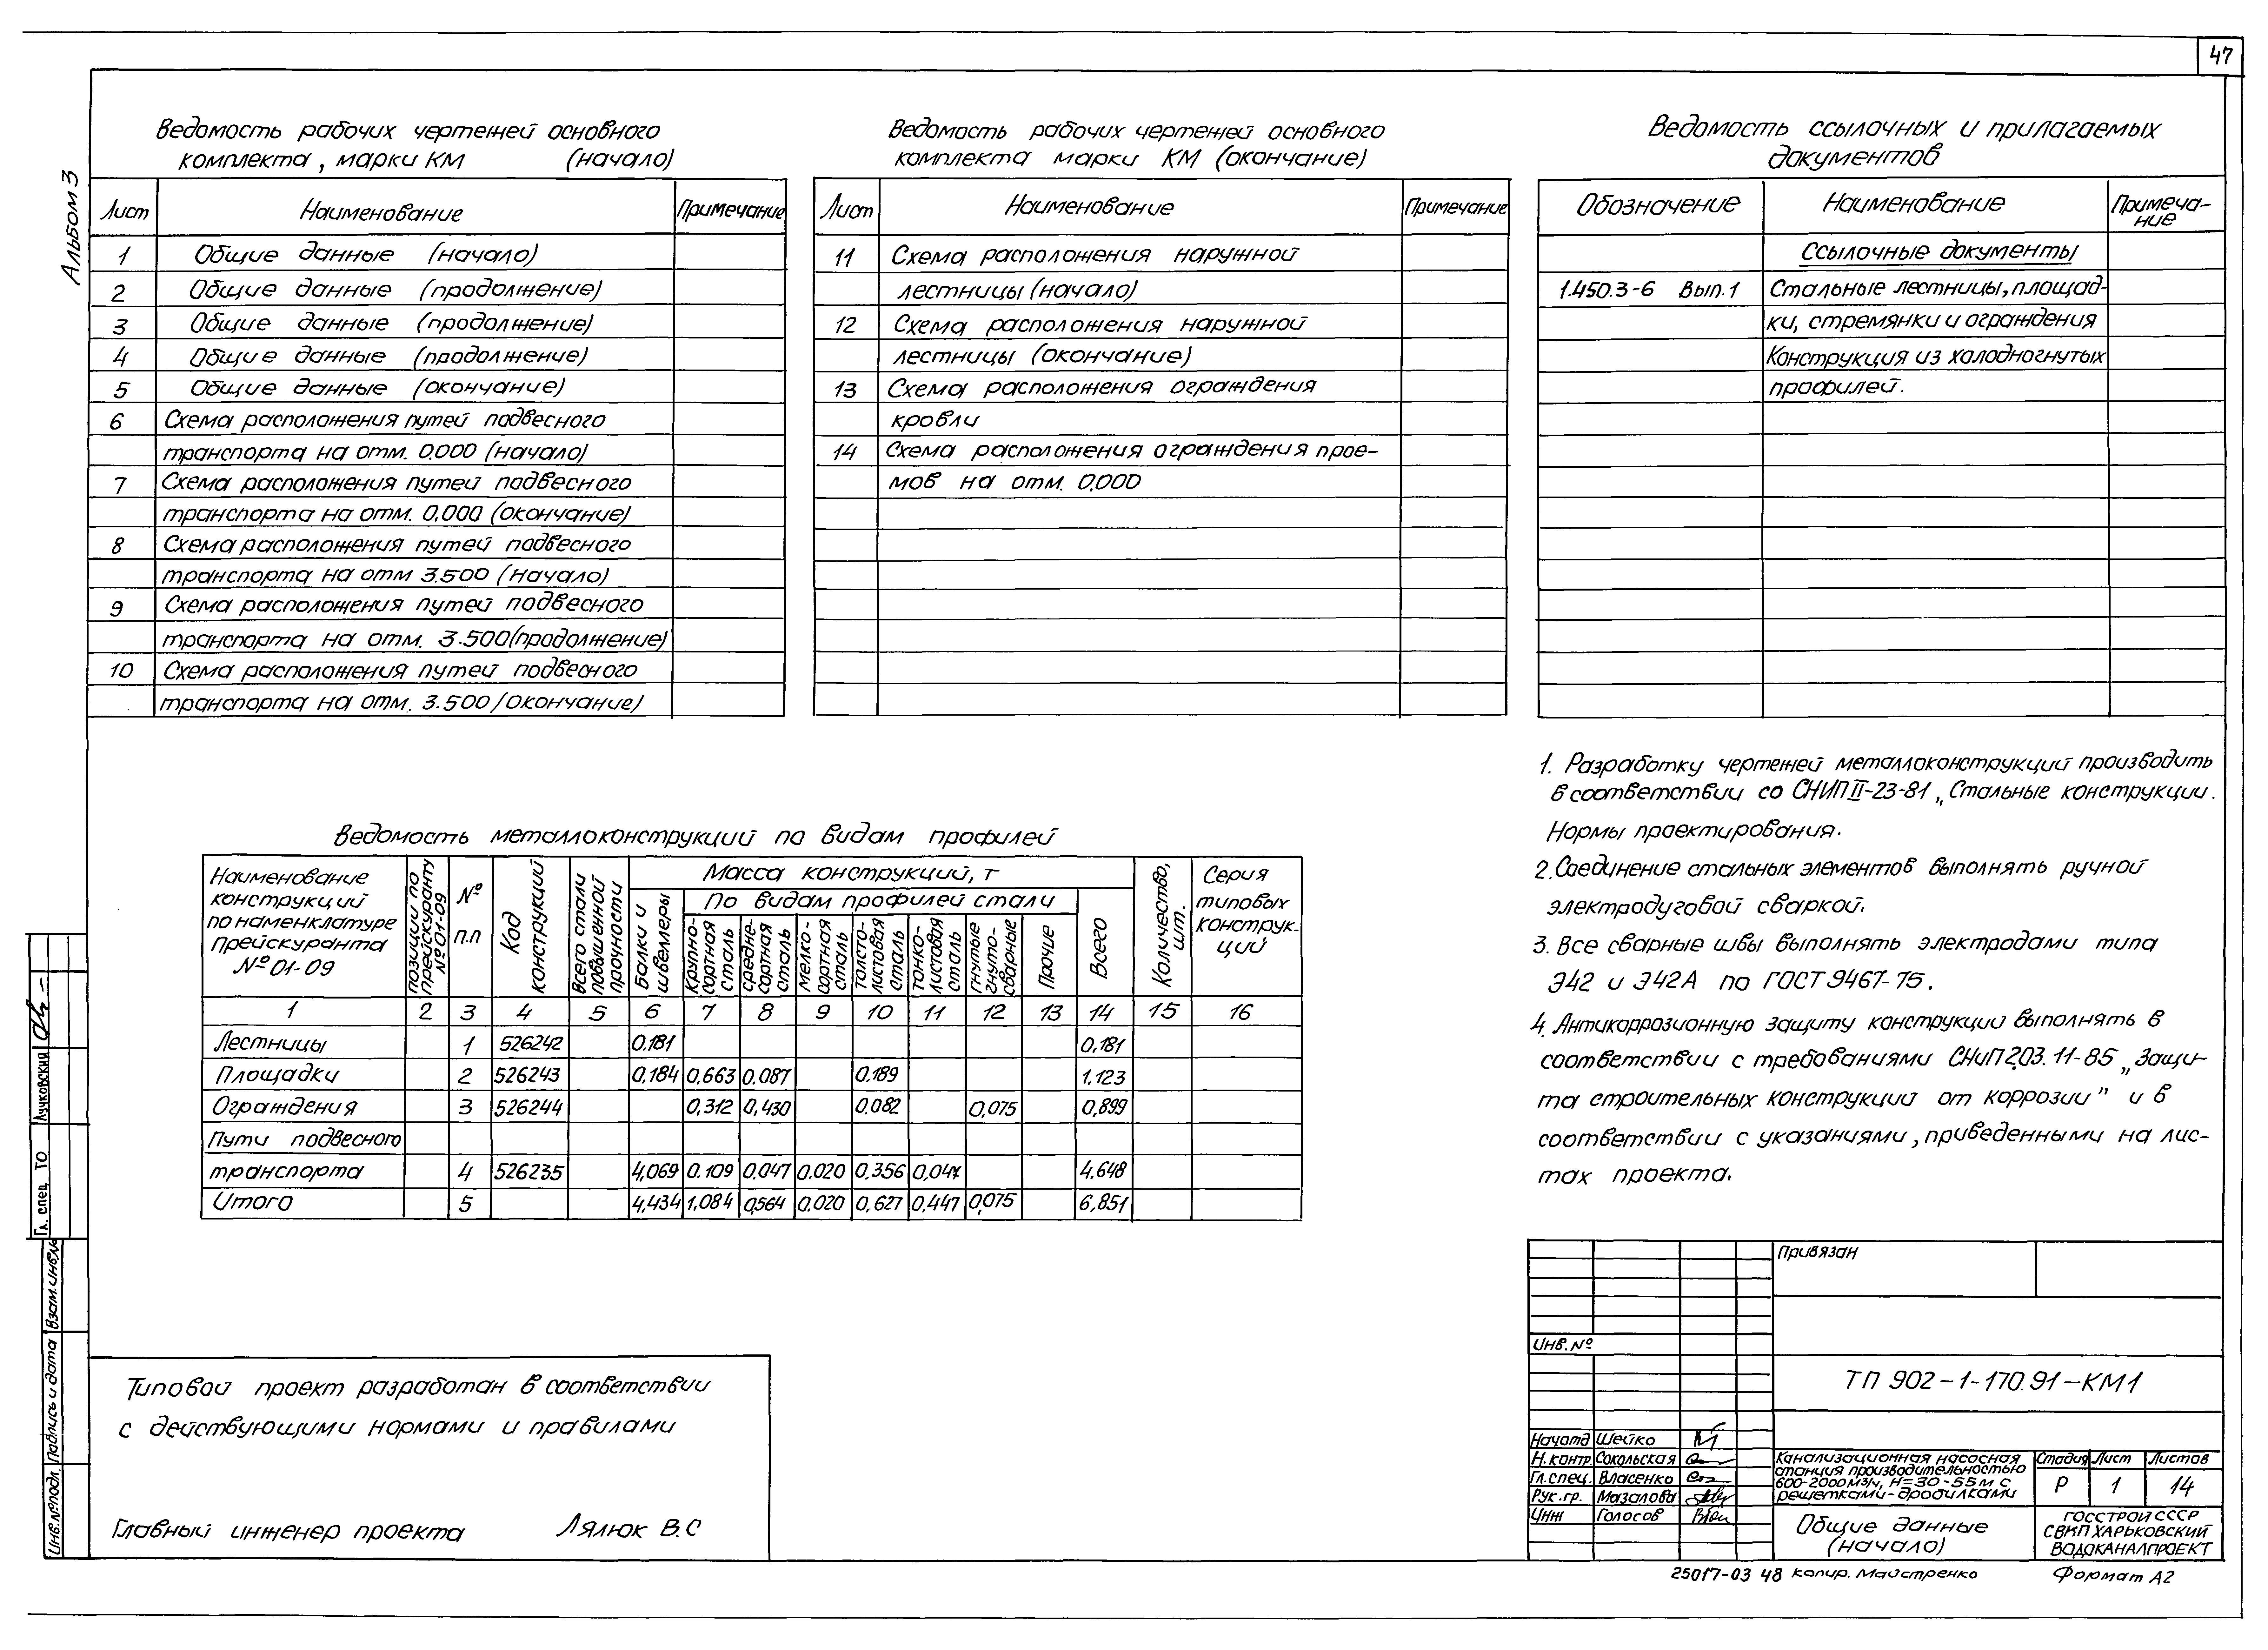 47
Альбом 3
Ведомость рабочих чертежей основного
комплекта, марки КМ (начало)
Лист Наименование Примечание
1 Общие данные (начало)
2 Общие данные (продолжение)
3 Общие данные (продолжение)
4 Общие данные (продолжение)
5 Общие данные (окончание)
6 Схема расположения путей подвесного
транспорта на отм. 0.000 (начало)
7 Схема расположения путей подвесного
транспорта на отм. 0,000 (окончание)
8 Схема расположения путей подвесного
транспорта на отм 3.500 (начало)
9 Схема расположения путей подвесного
транспорта на отм. 3.500 (продолжение)
10 Схема расположения путей подвесного
транспорта на отм. 3.500 /окончание)
Ведомость рабочих чертежей основного
комплекта марки КМ (окончание)
Лист Наименование Примечание
11 Схема расположения наружной
лестницы (начало)
12 Схема расположения наружной
лестницы (окончание)
13 Схема расположения ограждения
кровли
14 Схема расположения ограждения прое-
мов на отм. 0,000
Ведомость ссылочных и прилагаемых
документов
Обозначение Наименование Примеча-
ние
Ссылочные документы
1.450.3-6 Вып.1 Стальные лестницы, площад-
ки, стремянки и ограждения
Конструкция из холодногнутых
профилей.
1. Разработку чертежей металлоконструкций производить
в соответствии со СНИП II-23-81 „Стальные конструкции.
Нормы проектирования.
2. Соединение стальных элементов выполнять ручной
электродуговой сваркой.
3. Все сварные швы выполнять электродами типа
Э42 и Э42А по ГОСТ 9467-75.
4. Антикоррозионную защиту конструкций выполнять в
соответствии с требованиями СНиП 2.03.11-85 „Защи-
та строительных конструкций от коррозии" и в
соответствии с указаниями, приведенными на лис-
тах проекта.
Ведомость металлоконструкций по видам профилей
Наименование
конструкций
по наменклатуре
Прейскуранта
№ 01-09
позиции по
прейскуранту
№ 01-09
№
п.п
Код
конструкций
Всего стали
повышенной
прочности
Масса конструкций, т
Балки и
швеллеры
По видам профилей стали
Крупно-
сортная
сталь
средне-
сортная
сталь
мелко-
сортная
сталь
толсто-
листовая
сталь
тонко-
листовая
сталь
гнутые
гнуто-
сварные
Прочие
Всего
Количество,
шт.
Серия
типовых
конструк-
ций
1 2 3 4 5 6 7 8 9 10 11 12 13 14 15 16
Лестницы 1 526242 0.181 0,181
Площадки 2 526243 0,184 0,663 0.087 0.189 1.123
Ограждения 3 526244 0,312 0,430 0.082 0,075 0,899
Пути подвесного
транспорта 4 526235 4,069 0.109 0.047 0.020 0,356 4.648
Итого 5 4,434 1,084 0,564 0.020 0,627 0.447 0,075 6,851
Типовой проект разработан в соответствии
с действующими нормами и правилами
Главный инженер проекта Лялюк В.С
Гл. спец. ТО Лучковский
Взам.инв.№
Подпись и дата
Инв.№подл
Привязан
Инв. №
ТП 902-1-170.91-КМ1
Начотд Шейко
Н.контр. Сокольская
Гл.спец. Власенко
Рук.гр. Мазалова
Инж Голосов
Канализационная насосная
станция производительностью
600-2000м³/ч, Н=30-55м с
решетками-дробилками
Стадия Лист Листов
Р 1 14
Общие данные
(начало)
ГОССТРОЙ СССР
СВКП ХАРЬКОВСКИЙ
ВОДОКАНАЛПРОЕКТ
25017-03 48 Копир. Майстренко Формат А2